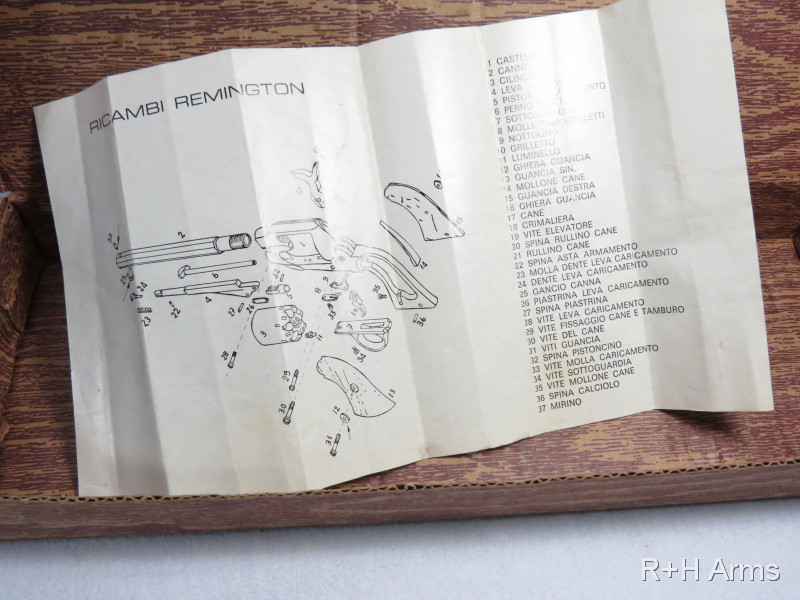 RICAMBI REMINGTON
1
2 CANNA
3
4 LEVA
5
6 PERNO
7
8 MOLLE
9
10 GRILLETTO
11 LUMINELLO
12 GHIERA GUANCIA
13 GUANCIA SIN.
14 MOLLONE CANE
15 GUANCIA DESTRA
16 GHIERA GUANCIA
17 CANE
18 CRIMALIERA
19 VITE ELEVATORE
20 SPINA RULLINO CANE
21 RULLINO CANE
22 SPINA ASTA ARMAMENTO
23 MOLLA DENTE LEVA CARICAMENTO
24 DENTE LEVA CARICAMENTO
25 GANCIO CANNA
26 PIASTRINA LEVA CARICAMENTO
27 SPINA PIASTRINA
28 VITE LEVA CARICAMENTO
29 VITE FISSAGGIO CANE E TAMBURO
30 VITE DEL CANE
31 VITI GUANCIA
32 SPINA PISTONCINO
33 VITE MOLLA CARICAMENTO
34 VITE SOTTOGUARDIA
35 VITE MOLLONE CANE
36 SPINA CALCIOLO
37 MIRINO
R+H Arms